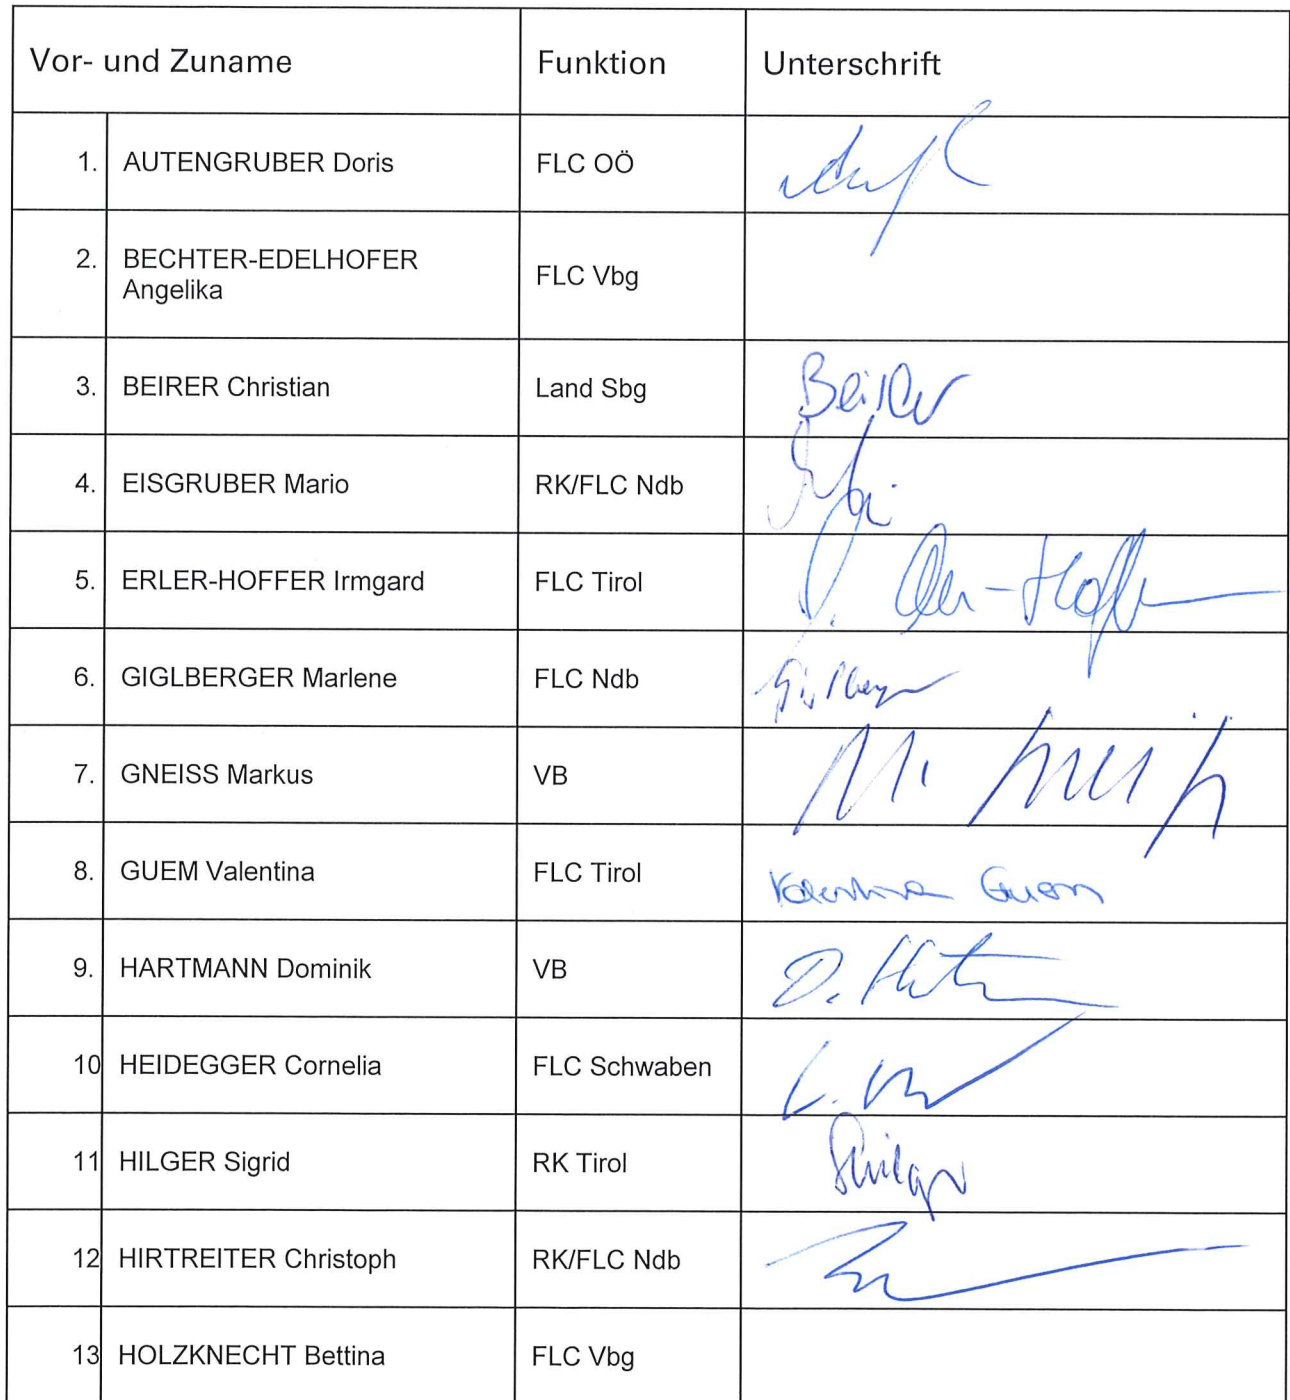 Vor- und Zuname Funktion Unterschrift
1. AUTENGRUBER Doris FLC OÖ
2. BECHTER-EDELHOFER
Angelika FLC Vbg
3. BEIRER Christian Land Sbg Beirer
4. EISGRUBER Mario RK/FLC Ndb
5. ERLER-HOFFER Irmgard FLC Tirol
6. GIGLBERGER Marlene FLC Ndb
7. GNEISS Markus VB
8. GUEM Valentina FLC Tirol Valentina Guem
9. HARTMANN Dominik VB
10 HEIDEGGER Cornelia FLC Schwaben
11 HILGER Sigrid RK Tirol
12 HIRTREITER Christoph RK/FLC Ndb
13 HOLZKNECHT Bettina FLC Vbg